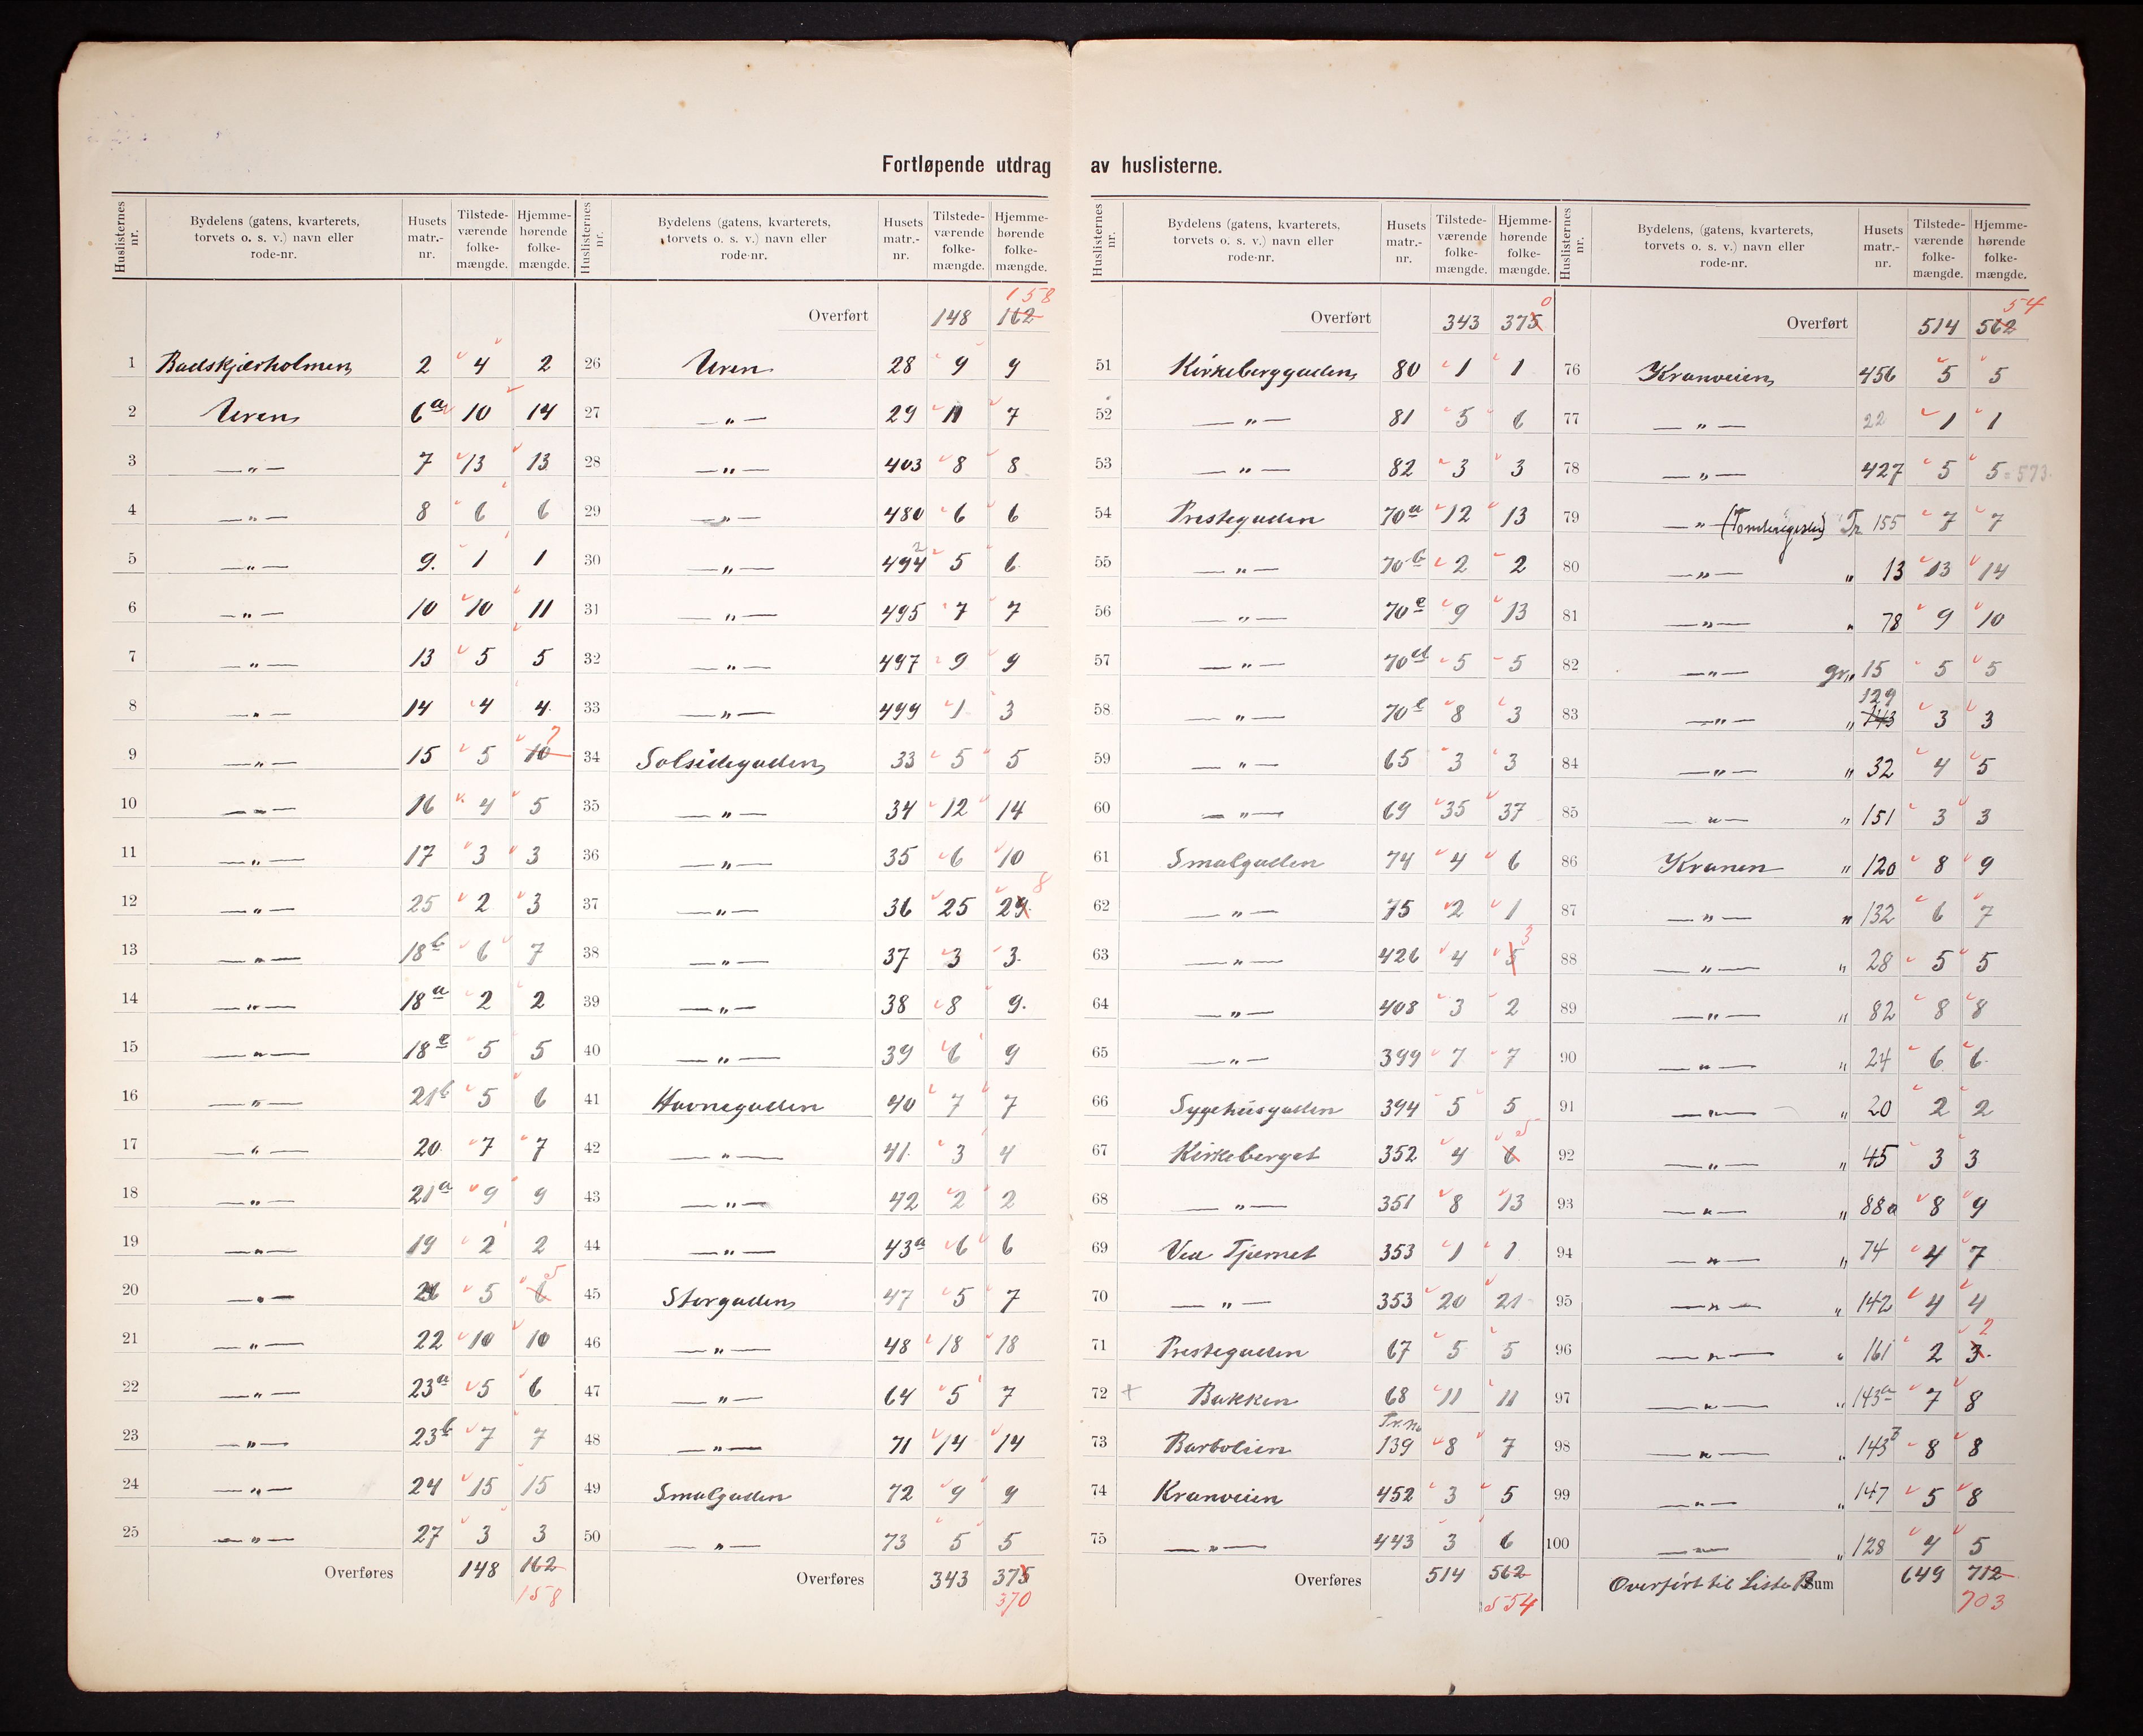 Fortløpende utdrag av huslisterne.
Huslisternes nr. | Bydelens (gatens, kvarterets, torvets o. s. v.) navn eller rode-nr. | Husets matr.-nr. | Tilstede-værende folke-mængde. | Hjemme-hørende folke-mængde.
1 Badskjærholmen 2 4 2
2 Uren 6a 10 14
3 —„— 7 13 13
4 —„— 8 6 6
5 —„— 9. 1 1
6 —„— 10 10 11
7 —„— 13 5 5
8 —„— 14 4 4
9 —„— 15 5 10 7
10 —„— 16 4 5
11 —„— 17 3 3
12 —„— 25 2 3
13 —„— 18b 6 7
14 —„— 18a 2 2
15 —„— 18c 5 5
16 —„— 21b 5 6
17 —„— 20 7 7
18 —„— 21a 9 9
19 —„— 19 2 2
20 —„— 26 5 6 5
21 —„— 22 10 10
22 —„— 23a 5 6
23 —„— 23b 7 7
24 —„— 24 15 15
25 —„— 27 3 3
Overføres 148 162
158
Huslisternes nr. | Bydelens (gatens, kvarterets, torvets o. s. v.) navn eller rode-nr. | Husets matr.-nr. | Tilstede-værende folke-mængde. | Hjemme-hørende folke-mængde.
158
Overført 148 162
26 Uren 28 9 9
27 —„— 29 11 7
28 —„— 403 8 8
29 —„— 480 6 6
30 —„— 494 2 5 6
31 —„— 495 7 7
32 —„— 497 9 9
33 —„— 499 1 3
34 Solsidegaden 33 5 5
35 —„— 34 12 14
36 —„— 35 6 10
37 —„— 36 25 29 8
38 —„— 37 3 3
39 —„— 38 8 9.
40 —„— 39 6 9
41 Havnegaden 40 7 7
42 —„— 41 3 4
43 —„— 42 2 2
44 —„— 43a 6 6
45 Storgaden 47 5 7
46 —„— 48 18 18
47 —„— 64 5 7
48 —„— 71 14 14
49 Smalgaden 72 9 9
50 —„— 73 5 5
Overføres 343 375
370
Huslisternes nr. | Bydelens (gatens, kvarterets, torvets o. s. v.) navn eller rode-nr. | Husets matr.-nr. | Tilstede-værende folke-mængde. | Hjemme-hørende folke-mængde.
0
Overført 343 375
51 Kirkeberggaden 80 1 1
52 —„— 81 5 6
53 —„— 82 3 3
54 Prestegaden 70a 12 13
55 —„— 70b 2 2
56 —„— 70c 9 13
57 —„— 70d 5 5
58 —„— 70e 8 3
59 —„— 65 3 3
60 —„— 69 35 37
61 Smalgaden 74 4 6
62 —„— 75 2 1
63 —„— 426 4 5 3
64 —„— 408 3 2
65 —„— 399 7 7
66 Sygehusgaden 394 5 5
67 Kirkeberget 352 4 6 5
68 —„— 351 8 13
69 Ved Tjernet 353 1 1
70 —„— 353 20 21
71 Prestegaden 67 5 5
72 + Bakken 68 11 11
73 Barbolien Tr. No 139 8 7
74 Kranveien 452 3 5
75 —„— 443 3 6
Overføres 514 562
554
Huslisternes nr. | Bydelens (gatens, kvarterets, torvets o. s. v.) navn eller rode-nr. | Husets matr.-nr. | Tilstede-værende folke-mængde. | Hjemme-hørende folke-mængde.
54
Overført 514 562
76 Kranveien 456 5 5
77 —„— 22 1 1
78 —„— 427 5 5 = 573.
79 —„— Tr. 155 7 7
80 —„— „ 13 13 14
81 —„— „ 78 9 10
82 —„— gr. 15 5 5
83 —„— „ 129 143 3 3
84 —„— „ 32 4 5
85 —„— „ 151 3 3
86 Kranen „ 120 8 9
87 —„— „ 132 6 7
88 —„— „ 28 5 5
89 —„— „ 82 8 8
90 —„— „ 24 6 6
91 —„— „ 20 2 2
92 —„— „ 45 3 3
93 —„— „ 88a 8 9
94 —„— „ 74 4 7
95 —„— „ 142 4 4
96 —„— „ 161 2 3 2
97 —„— „ 143a 7 8
98 —„— „ 143b 8 8
99 —„— „ 147 5 8
100 —„— „ 128 4 5
Overført til Liste B Sum 649 712
703